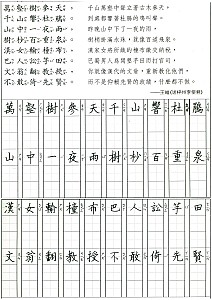 萬壑樹參天，
千山響杜鵑。
山中一夜雨，
樹杪百重泉。
漢女輸橦布，
巴人訟芋田。
文翁翻教授，
不敢倚先賢。
千山萬壑中聳立著古木參天，
到處都響著杜鵑的啼叫聲。
昨晚山中下了一夜的雨，
樹梢掛滿水珠，就像百道飛泉。
漢女
巴蜀有人為 芋田而打官司，
你就像漢代的文翁，重新教化他們，
而不是仰賴先賢的政績，什麼都不做。
——王維《送梓州李使君》
萬壑樹參天千山響杜鵑
山中一夜雨樹杪百重泉
漢女輸橦布巴人訟芋田
文翁翻教授不敢倚先賢